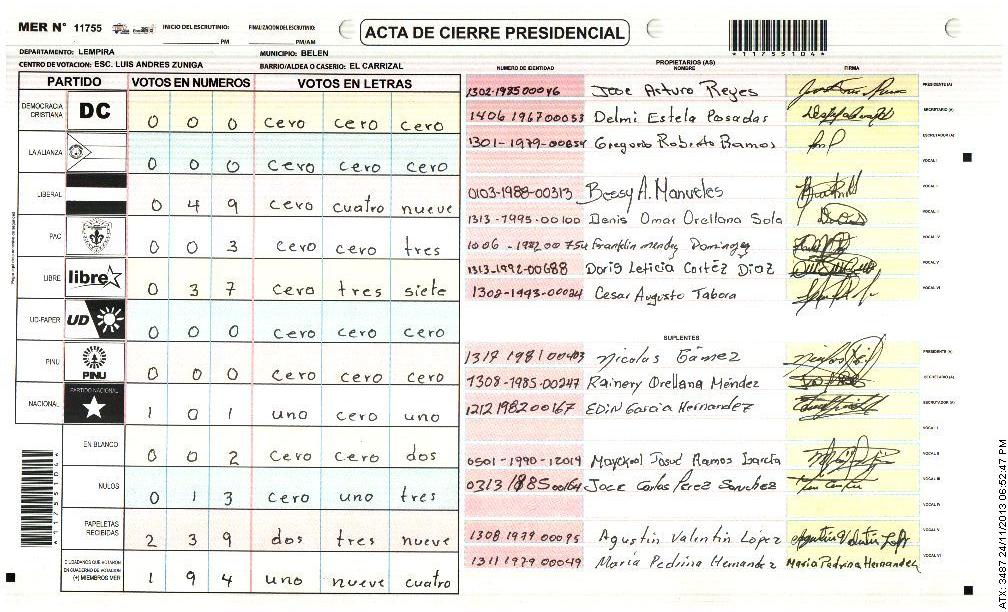 MER N° 11755 INICIO DEL ESCRUTINIO: PM FINALIZACION DEL ESCRUTINIO: PM/AM
ACTA DE CIERRE PRESIDENCIAL
*1175510 4*
DEPARTAMENTO: LEMPIRA MUNICIPIO: BELEN
CENTRO DE VOTACION: ESC. LUIS ANDRES ZUNIGA BARRIO/ALDEA O CASERIO: EL CARRIZAL
PARTIDO VOTOS EN NUMEROS VOTOS EN LETRAS
DEMOCRACIA CRISTIANA DC 0 0 0 cero cero cero
LA ALIANZA 0 0 0 cero cero cero
LIBERAL 0 4 9 cero cuatro nueve
PAC 0 0 3 cero cero tres
LIBRE libre 0 3 7 cero tres siete
UD-FAPER UD 0 0 0 cero cero cero
PINU PINU 0 0 0 cero cero cero
NACIONAL PARTIDO NACIONAL 1 0 1 uno cero uno
EN BLANCO 0 0 2 cero cero dos
NULOS 0 1 3 cero uno tres
PAPELETAS RECIBIDAS 2 3 9 dos tres nueve
CIUDADANOS QUE VOTARON EN CUADERNO DE VOTACION (+) MIEMBROS MER 1 9 4 uno nueve cuatro
PROPIETARIOS (AS)
NUMERO DE IDENTIDAD NOMBRE FIRMA
1302-1985 00046 Jose Arturo Reyes PRESIDENTE (A)
1406 1967 00053 Delmi Estela Posadas SECRETARIO (A)
1301-1979-00854 Gregorio Roberto Ramos ESCRUTADOR (A)
VOCAL I
0103-1988-00313 Bessy A. Manueles
1313-1995-00100 Denis Omar Orellana Sola
1006-1982 00754 Franklin mendez Dominguez VOCAL IV
1313-1992-00688 Doris Leticia Cortéz Diaz VOCAL V
1302-1993-00024 Cesar Augusto Tabora VOCAL VI
SUPLENTES
1317 1981 00403 Nicolas Gámez PRESIDENTE (A)
1308-1985-00247 Rainery Orellana Méndez SECRETARIO (A)
1212 1982 00167 EDin Garcia Hernandez ESCRUTADOR (A)
VOCAL I
0501-1990-12019 Mayckol Josué Ramos García VOCAL II
0313 1885 00164 Jose Carlos Perez Sanchez VOCAL III
1308 1979 00095 Agustin Valentin López VOCAL V
1311 1979 00049 Maria Pedrina Hernandez Maria Pedrina Hernandez VOCAL VI
ATX: 3487 24/11/2013 06:52:47 PM